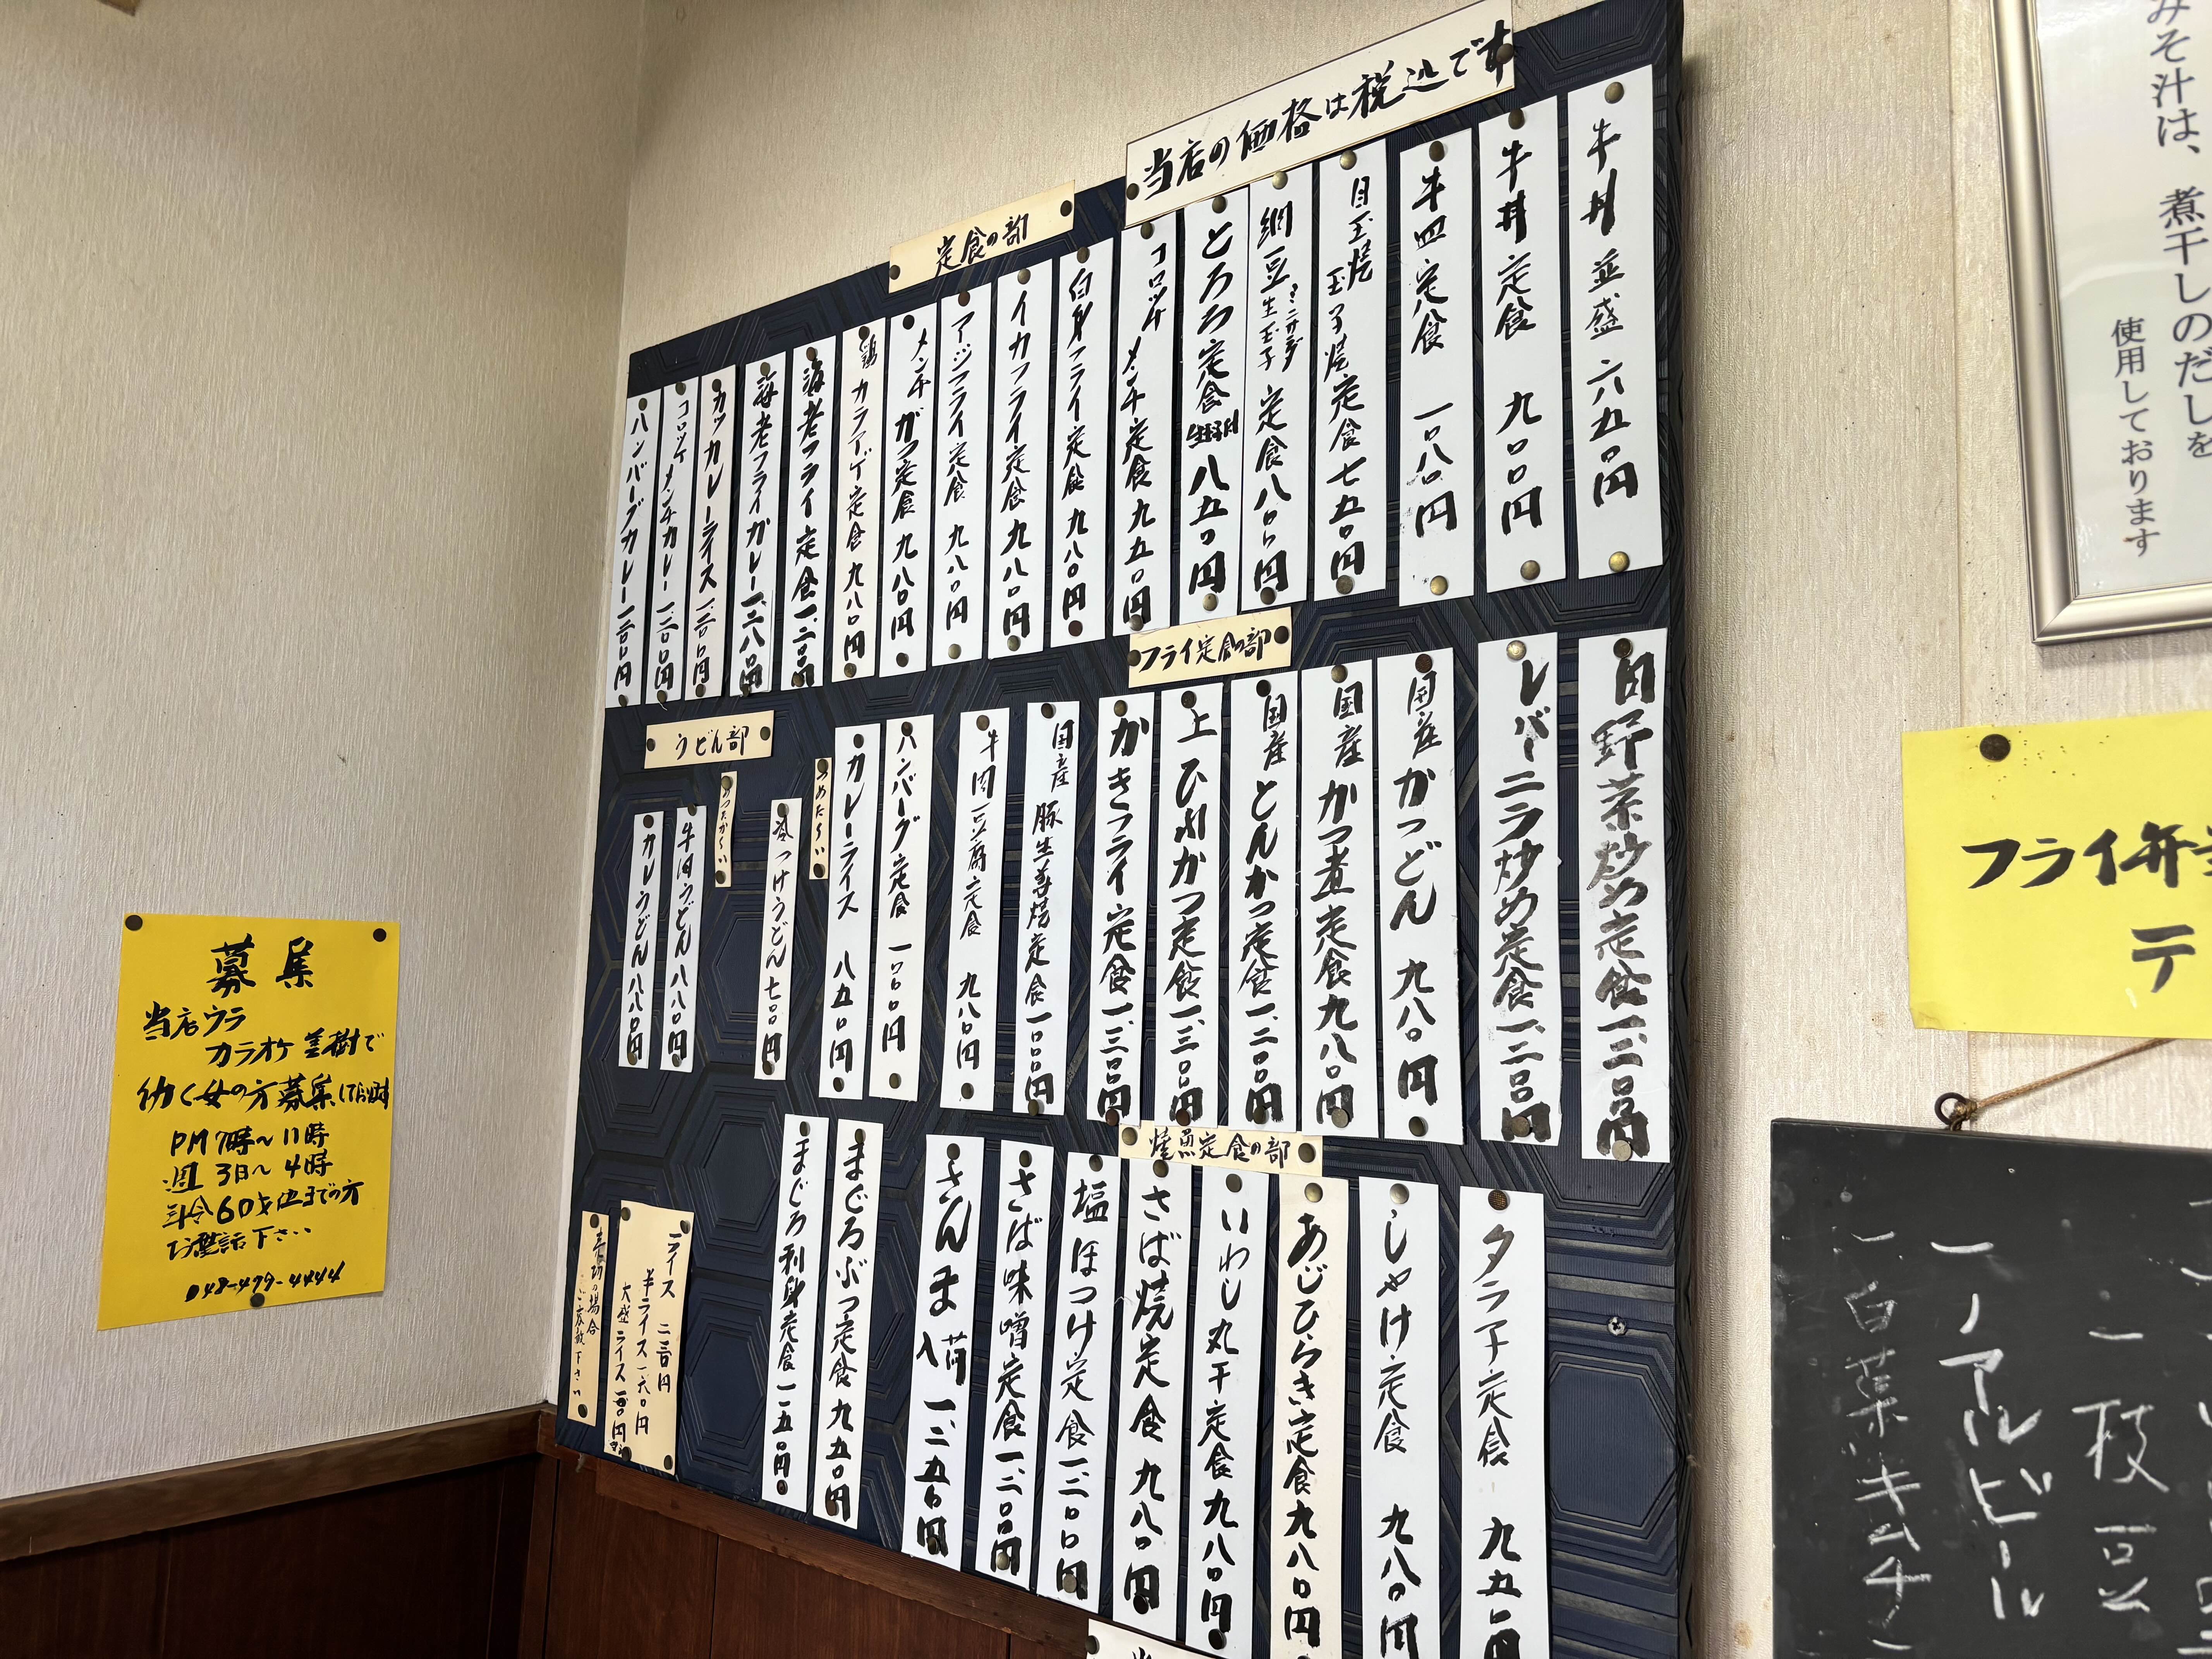 当店の価格は税込です
定食の部
牛丼 並盛 六五〇円
牛丼 定食 九〇〇円
牛皿 定食 一〇八〇円
目玉焼 玉子焼 定食 七五〇円
納豆 ミニサラダ 生玉子 定食 八〇〇円
とろろ定食 八五〇円
コロッケ メンチ 定食 九五〇円
白身フライ定食 九八〇円
イカフライ定食 九八〇円
アジフライ定食 九八〇円
メンチかつ定食 九八〇円
鶏カラアゲ定食 九八〇円
海老フライ定食 一、二〇〇円
海老フライカレー 一、二八〇円
カツカレーライス 一、二〇〇円
コロッケメンチカレー 一、二〇〇円
ハンバーグカレー 一、二〇〇円
フライ定食の部
肉野菜炒め定食 一、二〇〇円
レバーニラ炒め定食 一、二〇〇円
国産かつどん 九八〇円
国産かつ煮定食 九八〇円
国産とんかつ定食 一、二〇〇円
上ひれかつ定食 一、三〇〇円
かきフライ定食 一、三〇〇円
国産豚生姜焼定食 一〇〇〇円
牛肉豆腐定食 九八〇円
ハンバーグ定食 一〇〇〇円
カレーライス 八五〇円
うどん部
つめた〜い
つけうどん 七〇〇円
あったか〜い
牛肉うどん 八八〇円
カレーうどん 八八〇円
焼魚定食の部
タラ子定食 九五〇円
しゃけ定食 九八〇円
あじひらき定食 九八〇円
いわし丸干定食 九八〇円
さば焼定食 九八〇円
塩ほっけ定食 一、二〇〇円
さば味噌定食 一、二〇〇円
さんま入荷 一、二五〇円
まぐろぶつ定食 九五〇円
まぐろ刺身定食 一一五〇円
ライス 二三〇円
半ライス 一六〇円
大盛ライス
売切の場合
ご容赦下さい
募集
当店ウラ
カラオケ 美樹で
働く女の方募集しております
PM 7時〜11時
週 3日〜4時
年令60才位までの方
お電話下さい
048-479-4444
みそ汁は、煮干しのだしを
使用しております
フライ弁当
テ
一、枝豆
一、ノアルビール
一、白菜キムチ